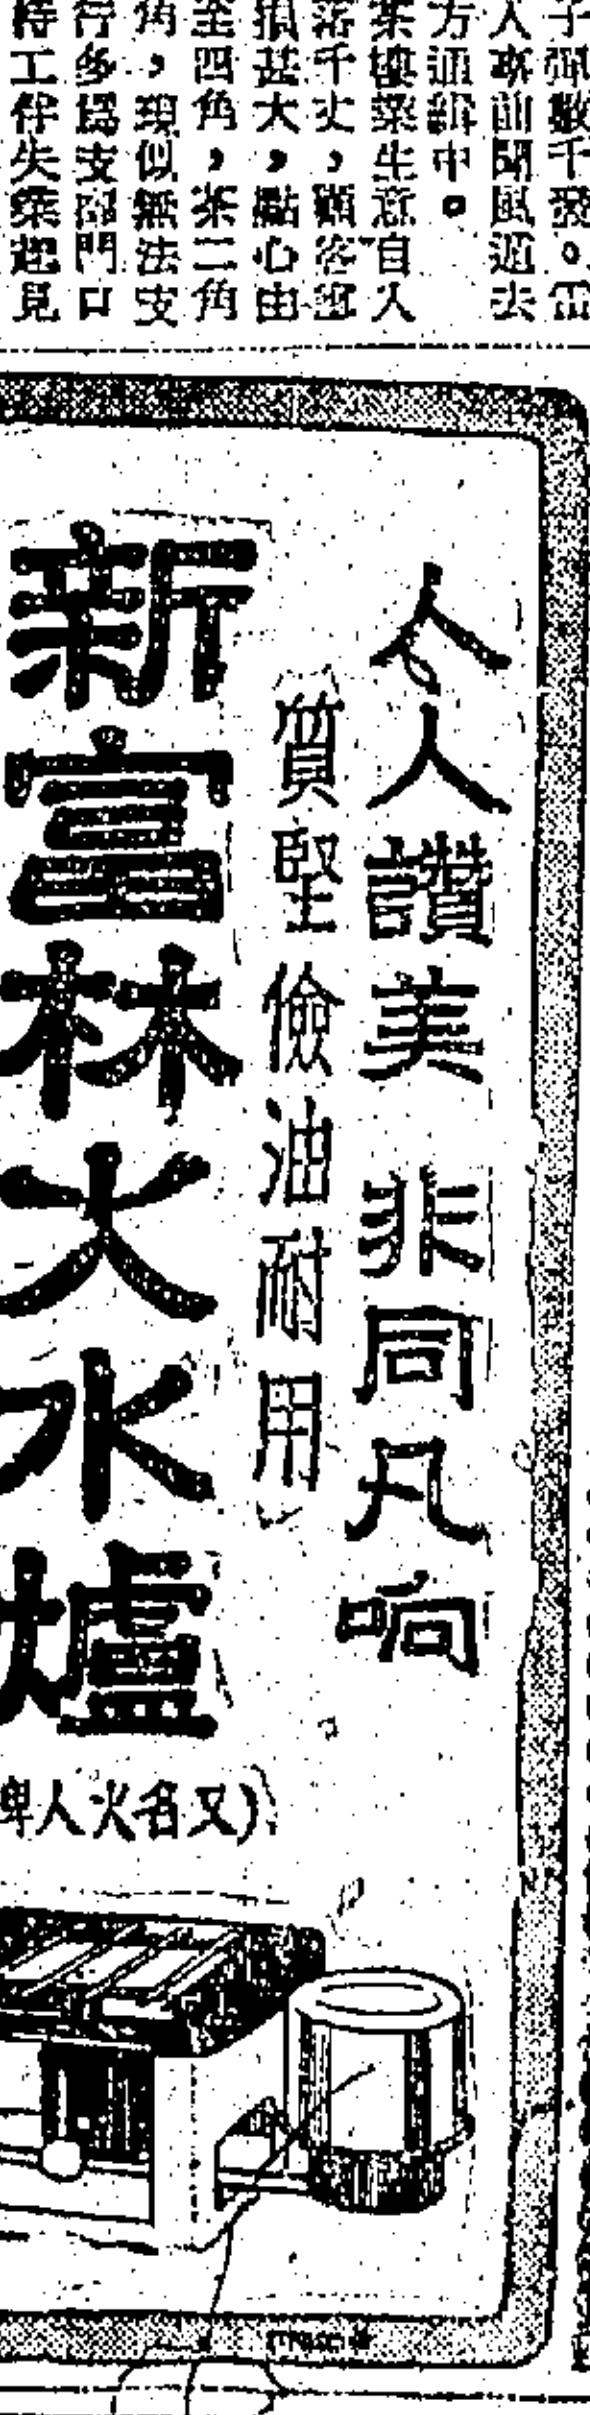 子彈數千發。雷
人事前聞風逃去
方通緝中。
茶樓業生意自入
落千丈，顧客
損甚大，點心由
至四角，茶二角
角，現似無法支
行多爲支部門口
特工伴失業起見
人人讚美 非同凡响
質堅儉油耐用
新富林大水爐
(又名火人牌